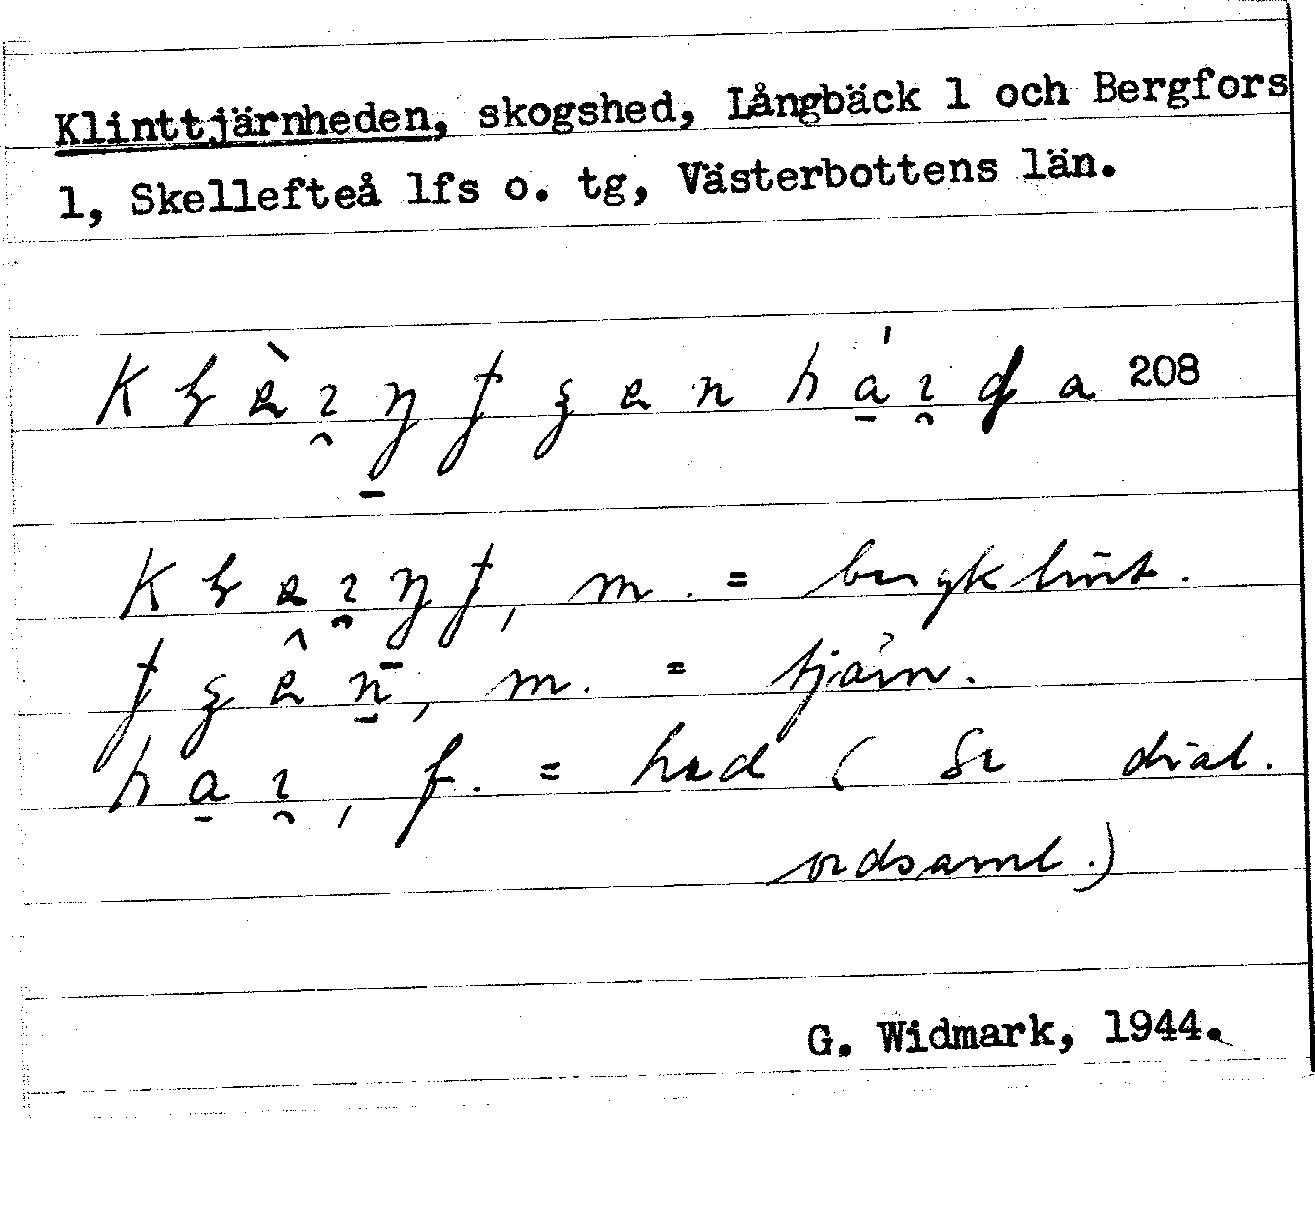 Klinttjärnheden, skogshed, Långbäck 1 och Bergfors
1, Skellefteå lfs o. tg, Västerbottens län.
208
m. = bergklint.
m. = tjärn.
f. = hed (Se dial.
ordsaml.)
G. Widmark, 1944.